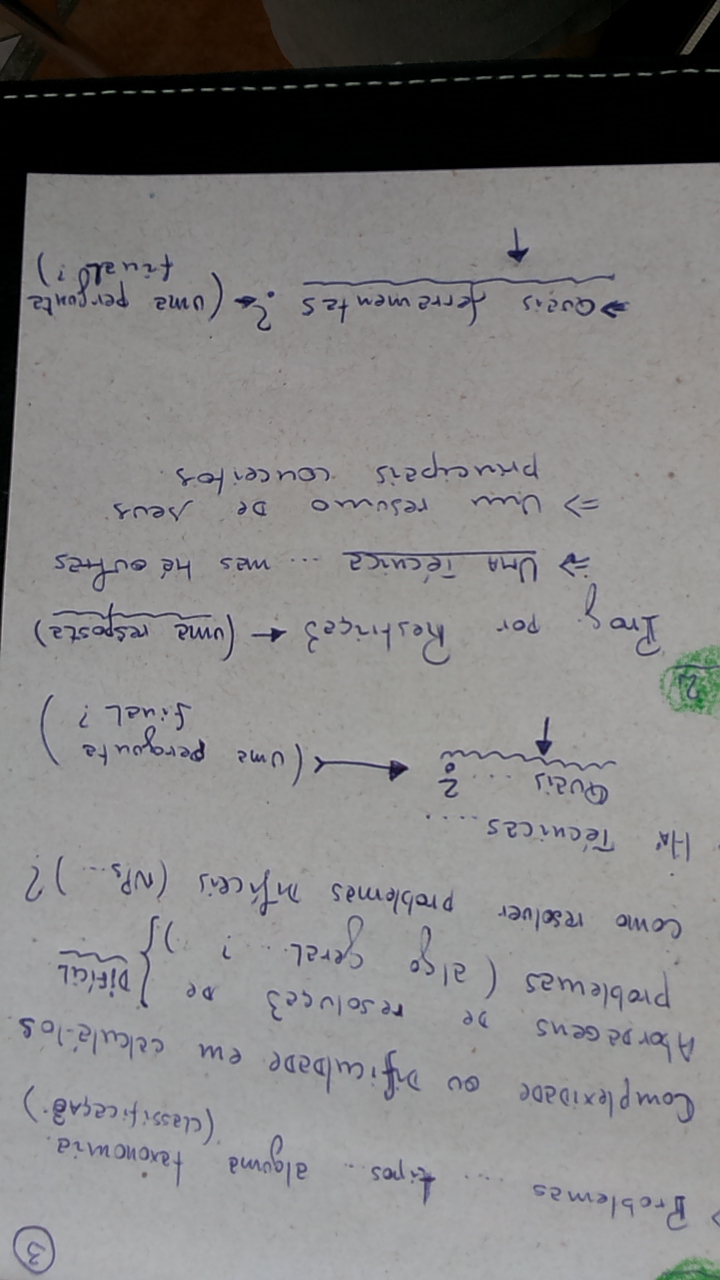 3
> Problemas ... tipos .. alguma taxonomia
(classificação)
Complexidade ou dificuldade em calculá-los
Abordagens de resolução de
problemas (algo geral ... ? ..)} DIFÍCIL
Como resolver problemas difíceis (NPs ...)?
Há Técnicas ....
Quais ... ? ← (uma pergunta
final?)
2 Prog. por Restrição ← (uma resposta)
⇒ UMA Técnica ... mas há outras
⇒ Um resumo de seus
principais conceitos.
→ Quais ferramentas ? ← (uma pergunta
final?)